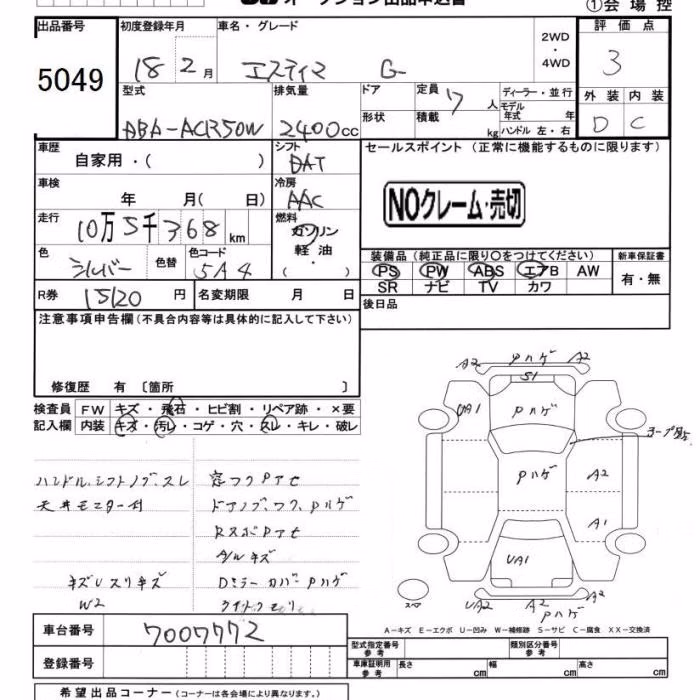 オークション出品申込書
①会場控
出品番号 初度登録年月 車名・グレード 2WD・4WD 評価点
5049 18 2月 エスティマ G 3
型式 排気量 ドア 定員 7人 ディーラー・並行 外装 内装
ABA-ACR50W 2400cc 形状 積載 kg モデル年式 年 ハンドル 左・右 D C
車歴 自家用・( ) シフト DAT セールスポイント (正常に機能するものに限ります)
車検 年 月( 日) 冷房 AAC NOクレーム・売切
走行 10万5千368km 燃料 ガソリン 軽油 ・( )
色 シルバー 色替 色コード 5A4 装備品(純正品に限り○をつけてください) 新車保証書
PS PW ABS エアB AW 有・無
SR ナビ TV カワ
R券 15120円 名変期限 月 日 後日品
注意事項申告欄(不具合内容等は具体的に記入して下さい)
修復歴 有 〔箇所 〕
検査員 FW キズ・飛石・ヒビ割・リペア跡・×要
記入欄 内装 キズ・汚レ・コゲ・穴・スレ・キレ・破レ
ハンドル、シフトノブ、スレ
天井モニター付
キズUスリキズ
W2
ドアノブ、ワク、Pハゲ
Dミラーカバー Pハゲ
A2 Pハゲ A2
S1
UA1 Pハゲ
Pハゲ A2
A1
UA1
スペア UA2 A2 A2
Pハゲ
A-キズ E-エクボ U-凹み W-補修跡 S-サビ C-腐食 XX-交換済
車台番号 7007772
登録番号
型式指定番号 参考 類別区分番号 参考
車庫証明用 参考 長さ cm 幅 cm 高さ cm
希望出品コーナー (コーナーは各会場により異なります。)